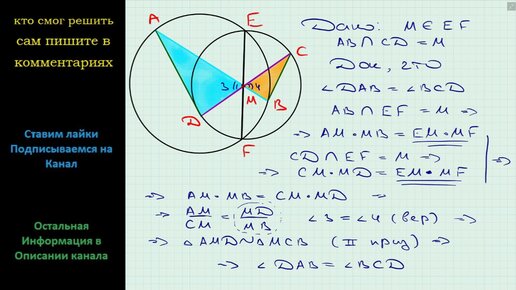 кто смог решить
сам пишите в
комментариях
Ставим лайки
Подписываемся на
Канал
Остальная
Информация в
Описании канала
A
E
C
3
4
M
B
D
F
Дано: M ∈ EF
AB ∩ CD = M
Док, что
∠DAB = ∠BCD
AB ∩ EF = M ⇒
⇒ AM • MB = EM • MF
CD ∩ EF = M ⇒
⇒ CM • MD = EM • MF ⇒
⇒ AM • MB = CM • MD ⇒
⇒ AM/CM = MD/MB ∠3 = ∠4 (вер) ⇒
⇒ △AMD ∾ △MCB (II приз) ⇒
⇒ ∠DAB = ∠BCD